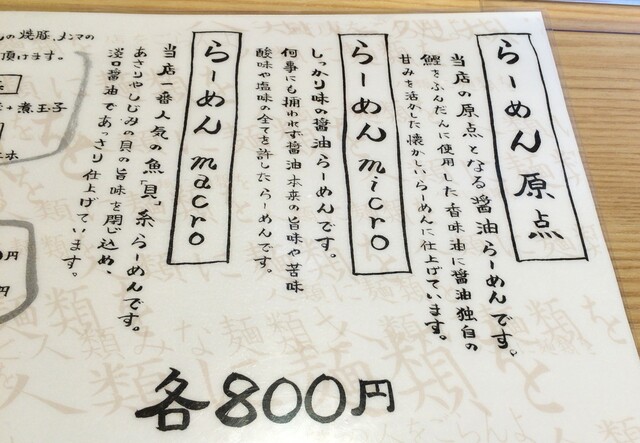 らーめん原点
当店の原点となる醤油らーめんです。
鰹をふんだんに使用した香味油に醤油独自の
甘みを活かした懐かしいらーめんに仕上げています。
らーめん micro
しっかり味の醤油らーめんです。
何事にも捕われず醤油本来の旨味や苦味
酸味や塩味の全てを許したらーめんです。
らーめん macro
当店一番人気の魚「貝」系らーめんです。
あさりやしじみの貝の旨味を閉じ込め、
淡口醤油であっさり仕上げています。
の焼豚、メンマの
頂けます。
+煮玉子
円
円
各800円